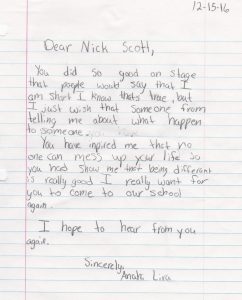 12-15-16
Dear Nick Scott,
You did so good on stage
that people would say that I
am short I know thats true, but
I just wish that someone from
telling me about what happen
to someone.
You have inpired me that no
one can mess up your life so
you had show me that being different
is really good I really want for
you to come to our school
again.
I hope to hear from you
again.
Sincerely,